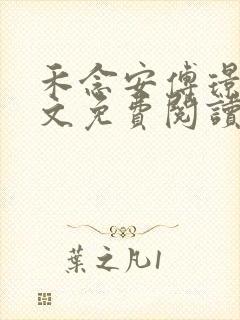 禾念安傅璟
文免費閱讀
葉之凡1